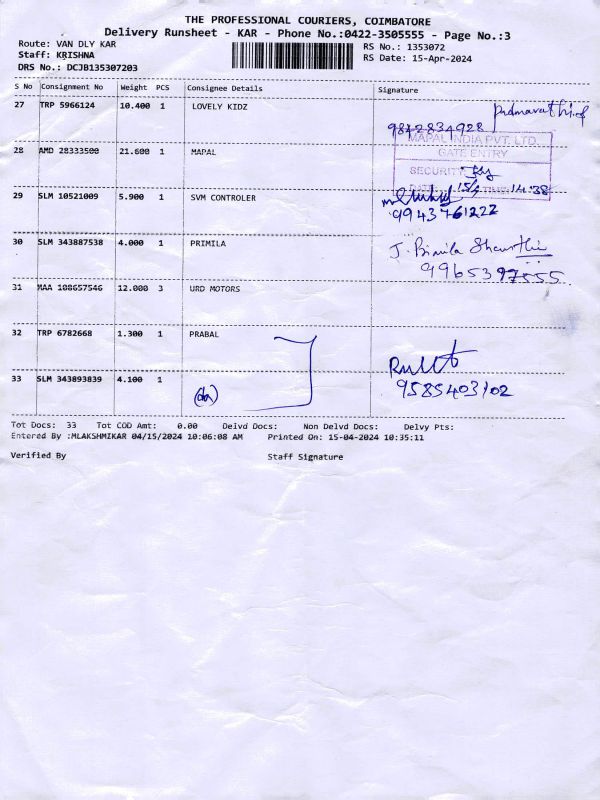 THE PROFESSIONAL COURIERS, COIMBATORE
Delivery Runsheet - KAR - Phone No.:0422-3505555 - Page No.:3
Route: VAN DLY KAR
Staff: KRISHNA
DRS No.: DCJB135307203
RS No.: 1353072
RS Date: 15-Apr-2024
S No Consignment No Weight PCS Consignee Details Signature
27 TRP 5966124 10.400 1 LOVELY KIDZ
9842834928
28 AMD 28333500 21.600 1 MAPAL
MAPAL INDIA PVT. LTD.
GATE ENTRY
SECURITY
DATE 15/4 TIME 14:38
29 SLM 10521009 5.900 1 SVM CONTROLER
9943761222
30 SLM 343887538 4.000 1 PRIMILA
J. Bimila
9965397555
31 MAA 108657546 12.000 3 URD MOTORS
32 TRP 6782668 1.300 1 PRABAL
33 SLM 343893839 4.100 1
9585403102
Tot Docs: 33 Tot COD Amt: 0.00 Delvd Docs: Non Delvd Docs: Delvy Pts:
Entered By :MLAKSHMIKAR 04/15/2024 10:06:08 AM Printed On: 15-04-2024 10:35:11
Verified By Staff Signature